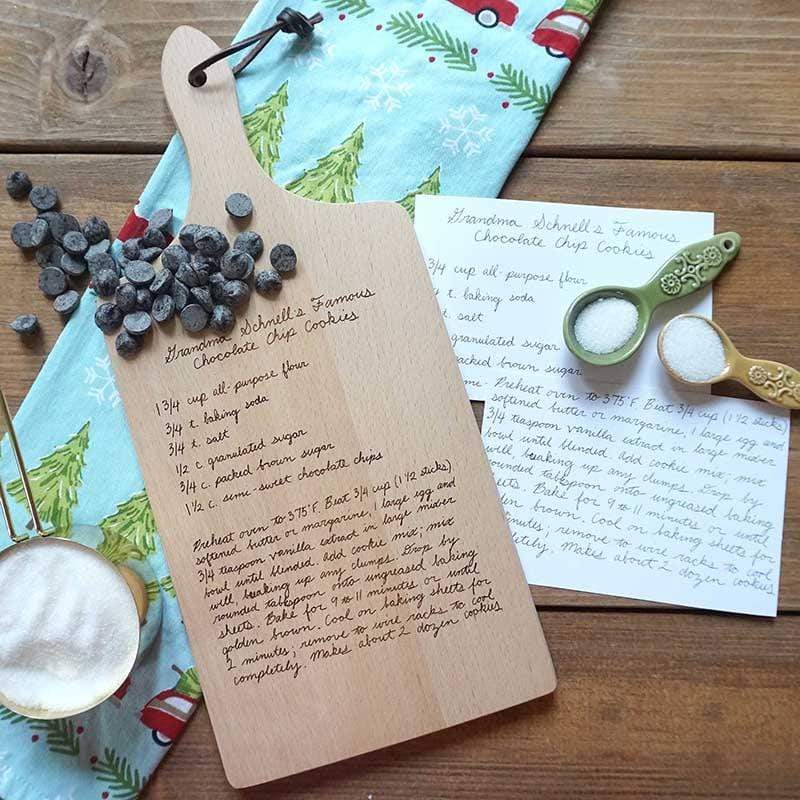 Grandma Schnell's Famous
Chocolate Chip Cookies
1 3/4 cup all-purpose flour
3/4 t. baking soda
3/4 t. salt
1/2 c. granulated sugar
3/4 c. packed brown sugar
1 1/2 c. semi-sweet chocolate chips
Preheat oven to 375°F. Beat 3/4 cup (1 1/2 sticks)
softened butter or margarine, 1 large egg and
3/4 teaspoon vanilla extract in large mixer
bowl until blended. Add cookie mix; mix
well, breaking up any clumps. Drop by
rounded tablespoon onto ungreased baking
sheets. Bake for 9 to 11 minutes or until
golden brown. Cool on baking sheets for
2 minutes; remove to wire racks to cool
completely. Makes about 2 dozen cookies
Grandma Schnell's Famous
Chocolate Chip Cookies
3/4 cup all-purpose flour
t. baking soda
t. salt
granulated sugar
packed brown sugar
semi-
Preheat oven to 375°F. Beat 3/4 cup (1 1/2 sticks)
softened butter or margarine, 1 large egg and
3/4 teaspoon vanilla extract in large mixer
bowl until blended. Add cookie mix; mix
well, breaking up any clumps. Drop by
rounded tablespoon onto ungreased baking
sheets. Bake for 9 to 11 minutes or until
golden brown. Cool on baking sheets for
minutes; remove to wire racks to cool
completely. Makes about 2 dozen cookies